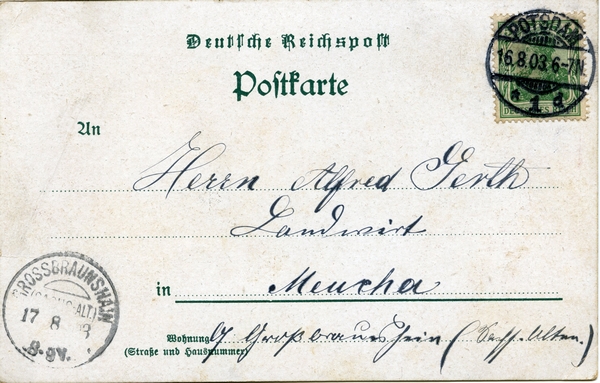 Deutsche Reichspost
Postkarte
POTSDAM
16.8.03.6-7N.
* 1 d
An
Herrn Alfred Gerth
Landwirt
in Meucha
GROSSBRAUNSHAIN
17 8 03
8-9V.
Wohnung
(Straße und Hausnummer)
Großbraunshein (Sachs. Alten.)